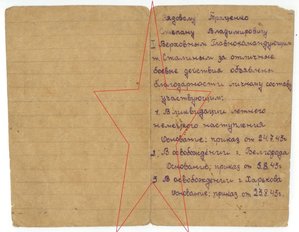 Рядовому Проценко
Степану Владимировичу
I Верховным Главнокомандующим
т. Сталиным за отличные
боевые действия объявлены
благодарности личному составу
участвующим:
1. В ликвидации летнего
немецкого наступления
Основание: приказ от 24.7.43г.
2. В освобождении г. Белгорода
Основание, приказ от 5.8.43г.
3. В освобождении г. Харькова
Основание: приказ от 23.8.43г.